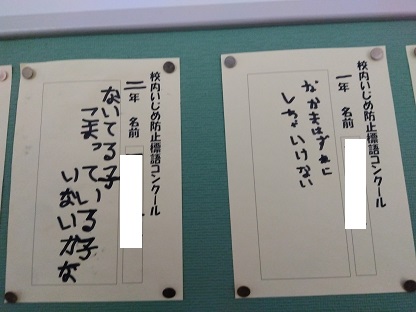 校内いじめ防止標語コンクール
一年 名前
なかまはずれに
しちゃいけない
校内いじめ防止標語コンクール
二年 名前
ないてる子
こまっている子
いないかな